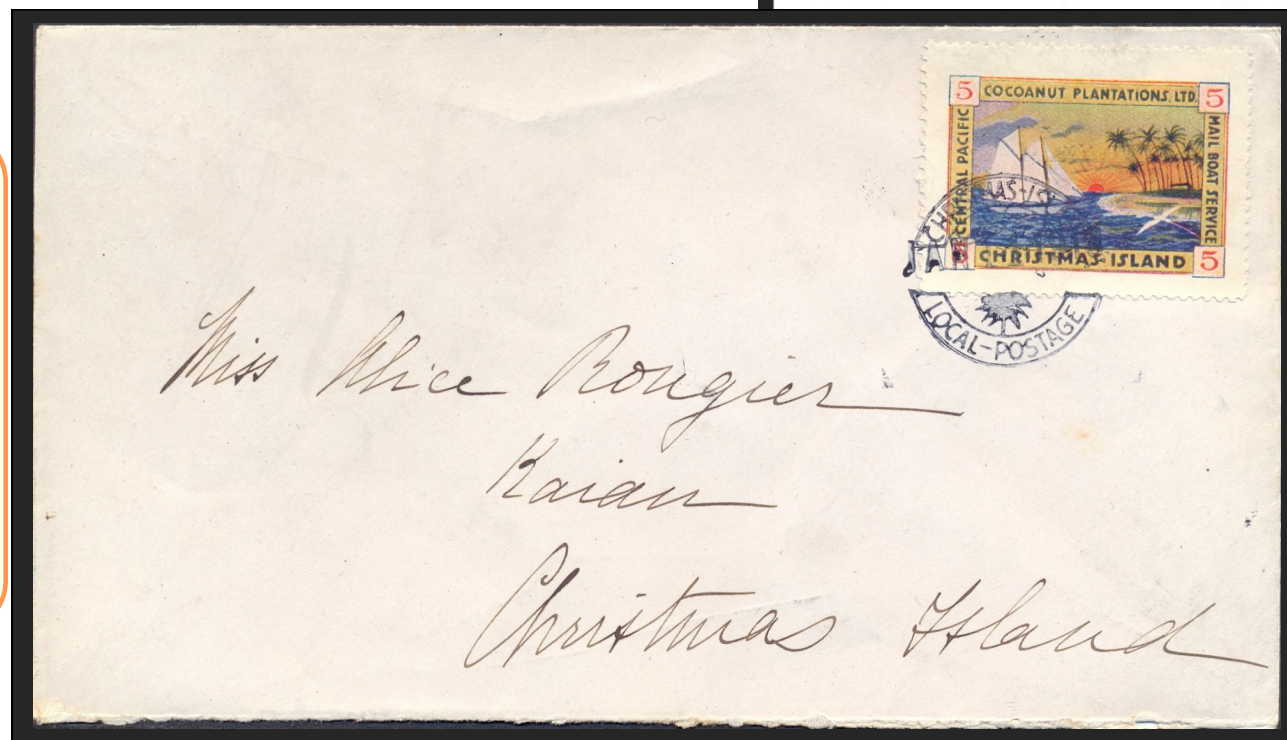 5 COCOANUT PLANTATIONS LTD. 5
CENTRAL PACIFIC
MAIL BOAT SERVICE
5 CHRISTMAS ISLAND 5
LOCAL-POSTAGE
Miss Alice Rougier
Kaian
Christmas Island